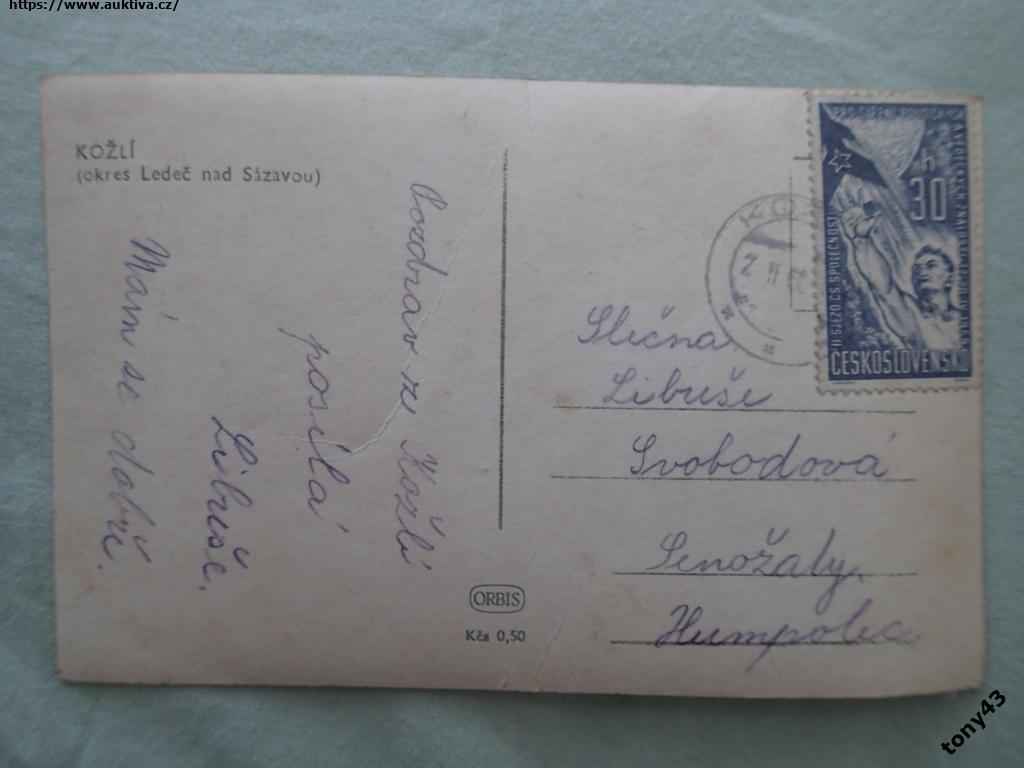 https://www.auktiva.cz/
KOŽLÍ
(okres Ledeč nad Sázavou)
Pozdrav ze Kožlí
posílá
Libuše.
Mám se dobře.
ORBIS
Kčs 0,50
30 h
II SJEZD ČS. SPOLEČNOSTI
ČESKOSLOVENSKO
Slečna
Libuše
Svobodová
Senožaty,
Humpolec
tony43